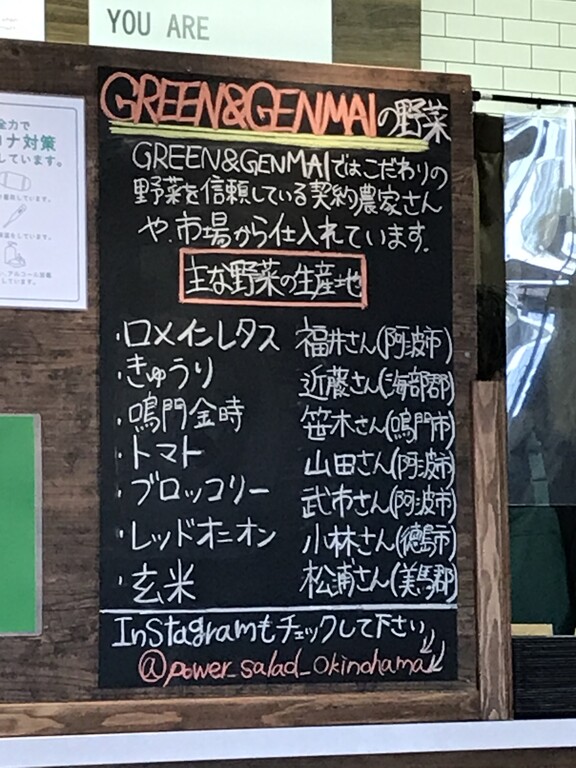 YOU ARE
GREEN&GENMAIの野菜
GREEN&GENMAIではこだわりの
野菜を信頼している契約農家さん
や、市場から仕入れています。
主な野菜の生産地
・ロメインレタス 福井さん(阿波市)
・きゅうり 近藤さん(海部郡)
・鳴門金時 笹木さん(鳴門市)
・トマト 山田さん(阿波市)
・ブロッコリー 武市さん(阿波市)
・レッドオニオン 小林さん(徳島市)
・玄米 松浦さん(美馬郡)
Instagramもチェックして下さい
@power_salad_okinohama
全力で
ロナ対策
しています。